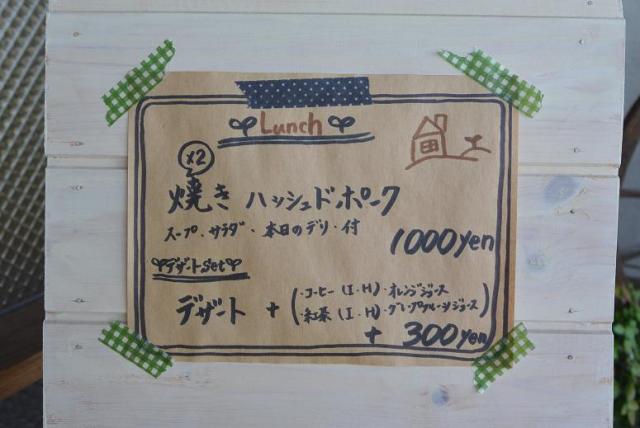 Lunch
x2
焼き ハッシュドポーク
スープ・サラダ・本日のデリ・付
1000yen
デザートset
・コーヒー (I・H)・オレンジジュース
デザート + ・紅茶 (I・H)・グレープフルーツジュース
+ 300yen